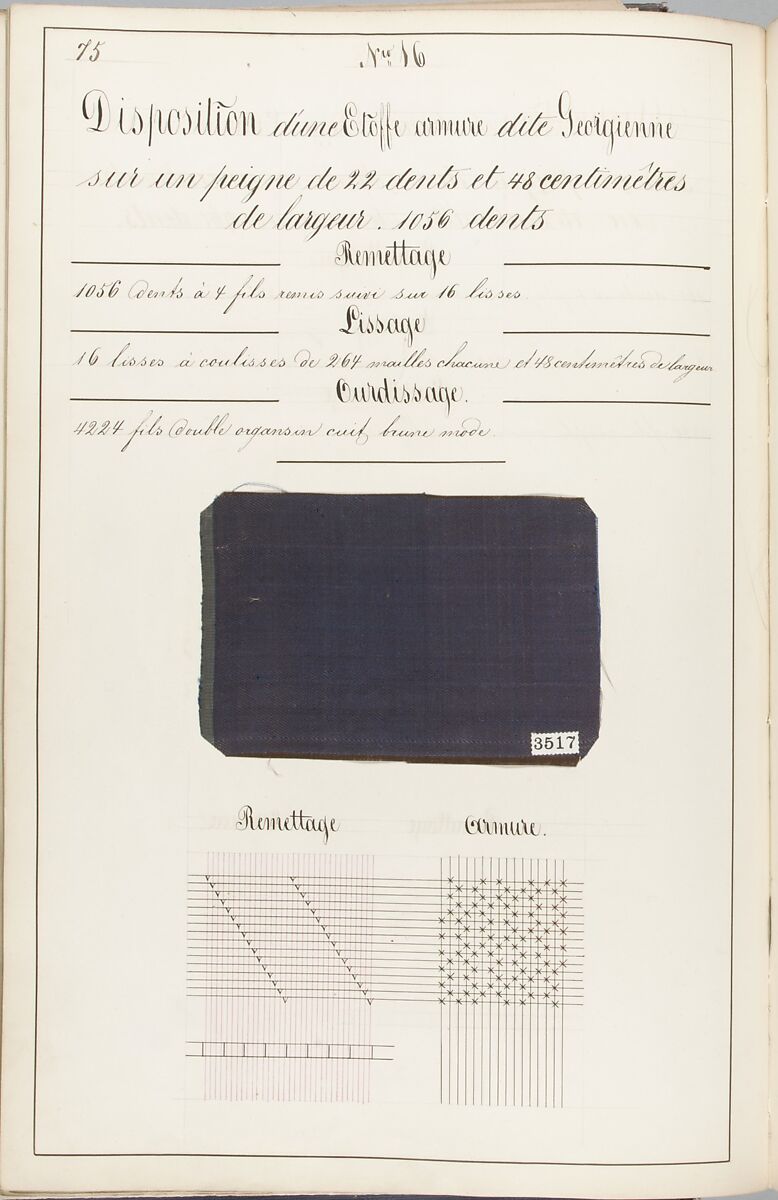 75
Nro 16
Disposition d'une Etoffe armure dite Georgienne
sur un peigne de 22 dents et 48 centimêtres
de largeur. 1056 dents
Remettage
1056 dents à 4 fils remis suivi sur 16 lisses
Lissage
16 lisses à coulisses de 264 mailles chacune et 48 centimêtres de largeur
Ourdissage.
4224 fils double organsin cuit, brune mode.
3517
Remettage
Armure.